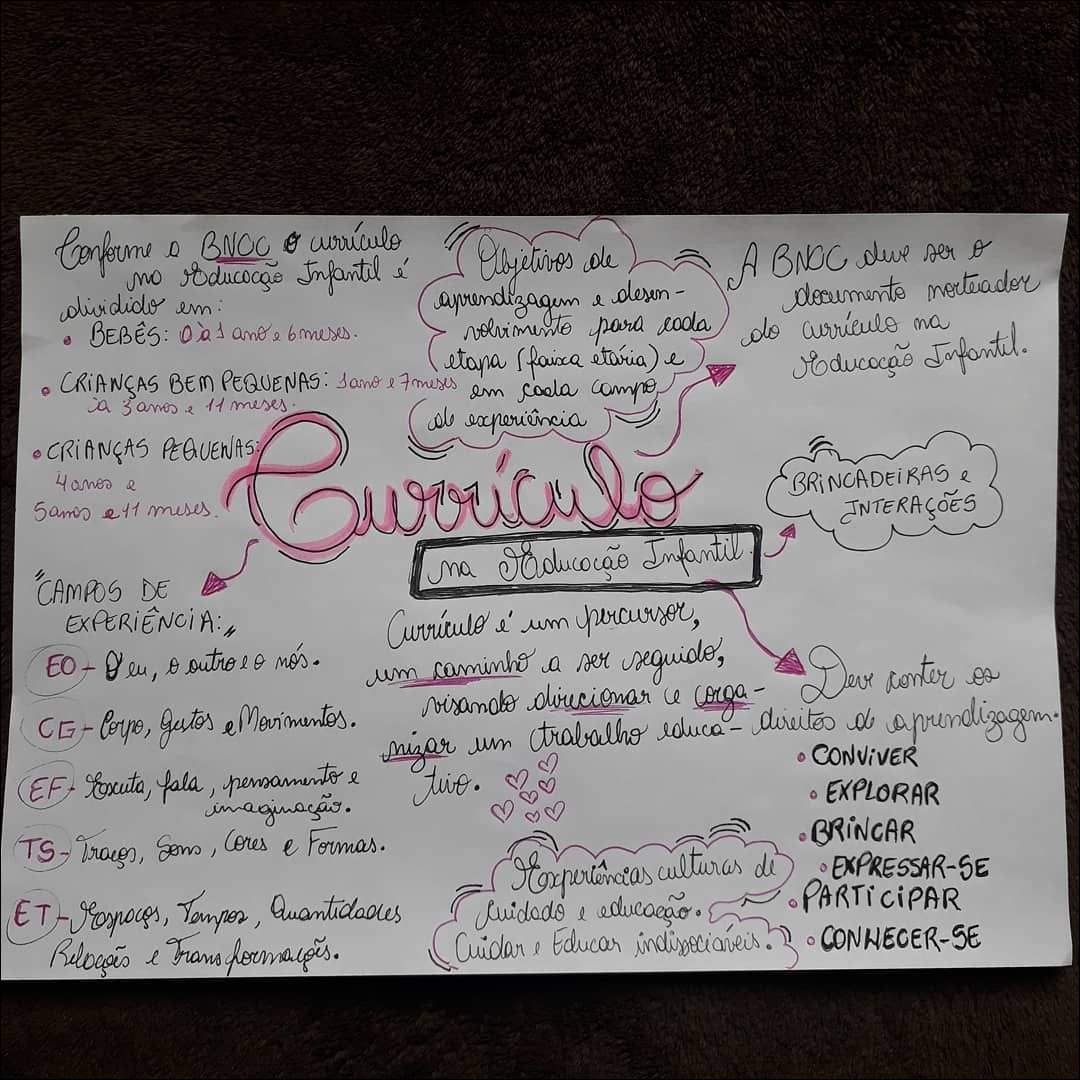 Conforme a BNCC o currículo
na Educação Infantil é
dividido em:
• BEBÊS: 0 à 1 ano e 6 meses.
• CRIANÇAS BEM PEQUENAS: 1 ano e 7 meses
à 3 anos e 11 meses.
• CRIANÇAS PEQUENAS:
4 anos e
5 anos e 11 meses.
Objetivos de
aprendizagem e desen-
volvimento para cada
etapa (faixa etária) e
em cada campo
de experiência
A BNCC deve ser o
documento norteador
do currículo na
Educação Infantil.
Currículo
na Educação Infantil.
BRINCADEIRAS e
INTERAÇÕES
"CAMPOS DE
EXPERIÊNCIA:"
EO - O eu, o outro e o nós.
CG - Corpo, Gestos e Movimentos.
EF - Escuta, fala, pensamento e
imaginação.
TS - Traços, Sons, Cores e Formas.
ET - Espaços, Tempos, Quantidades
Relações e Transformações.
Currículo é um percursor,
um caminho a ser seguido,
visando direcionar e orga-
nizar um trabalho educa-
tivo.
Experiências culturas de
cuidado e educação.
Cuidar e Educar indissociáveis.
Deve conter os
direitos de aprendizagem.
• CONVIVER
• EXPLORAR
• BRINCAR
• EXPRESSAR-SE
• PARTICIPAR
• CONHECER-SE